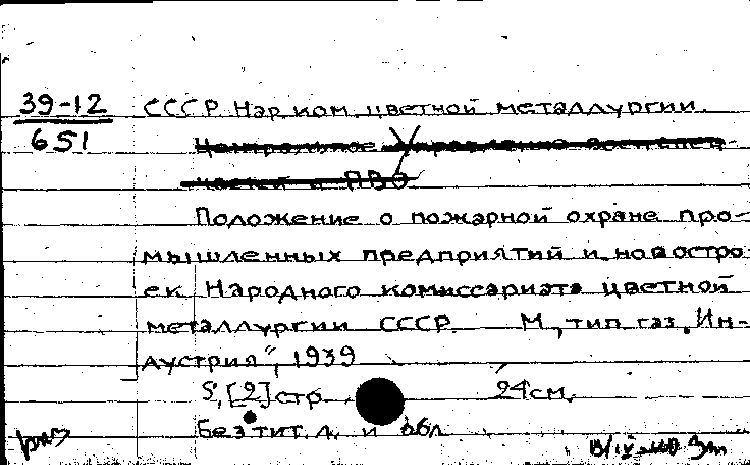 39-12
651
СССР. Нар. ком. цветной металлургии.
Центральное управление военспец-
частей и ПВО
Положение о пожарной охране про-
мышленных предприятий и новостро-
ек Народного комиссариата цветной
металлургии СССР. М, тип. газ. „Ин-
дустрия", 1939
5, [2] стр. 24 см.
Без тит. л. и обл.